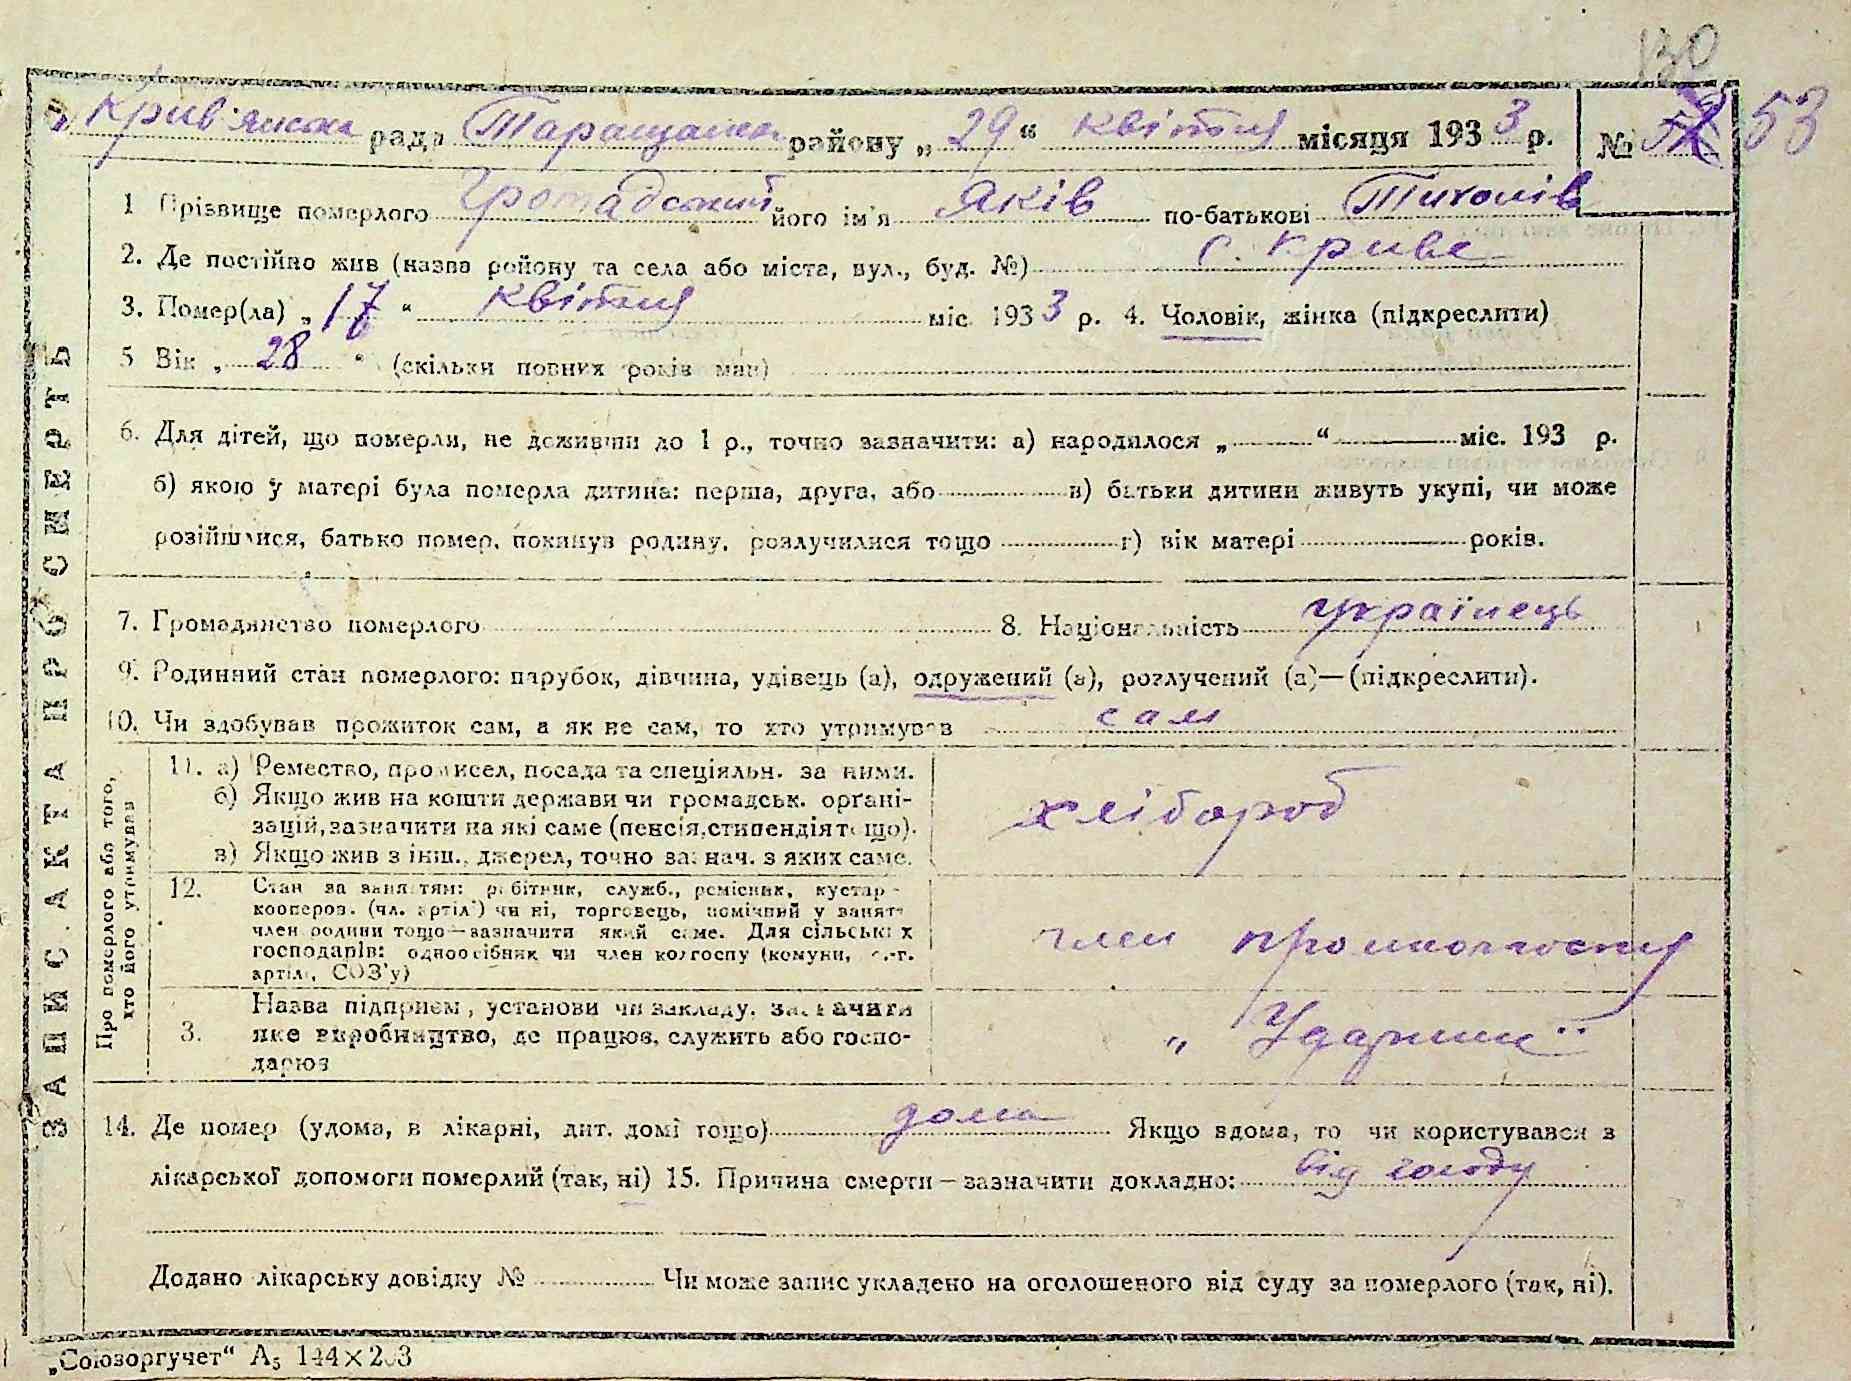 130
Крив'янська рада Таращанськ району „29“ квітня місяця 1933 р. № 53
1 Прізвище померлого Громадський його ім'я Яків по-батькові Тихонів
2. Де постійно жив (назва району та села або міста, вул., буд. №) с. Криве
3. Помер(ла) „17“ квітня міс. 1933 р. 4. Чоловік, жінка (підкреслити)
5 Вік „28“ (скільки повних років мав)
6. Для дітей, що померли, не доживши до 1 р., точно зазначити: а) народилося „ “ міс. 193 р.
б) якою у матері була померла дитина: перша, друга, або в) батьки дитини живуть укупі, чи може
розійшлися, батько помер, покинув родину, розлучилися тощо г) вік матері років.
7. Громадянство померлого 8. Національність українець
9. Родинний стан померлого: парубок, дівчина, удівець (а), одружений (а), розлучений (а)—(підкреслити).
10. Чи здобував прожиток сам, а як не сам, то хто утримував сам
Про померлого або того, хто його утримував
11. а) Ремество, промисел, посада та спеціяльн. за ними.
б) Якщо жив на кошти держави чи громадськ. органі-
зацій, зазначити на які саме (пенсія, стипендія тощо).
в) Якщо жив з інш., джерел, точно зазнач. з яких саме.
хлібороб
12. Стан за заняттям: робітник, служб., ремісник, кустар -
кооперов. (чл. артіл') чи ні, торговець, помічний у занятт
член родини тощо—зазначити який саме. Для сільських
господарів: одноосібник чи член колгоспу (комуни, с.-г.
артілі, СОЗ'у)
член
3. Назва підприєм, установи чи закладу, зазначити
яке виробництво, де працює, служить або госпо-
дарює
„Ударник"
14. Де помер (удома, в лікарні, дит. домі тощо) дома Якщо вдома, то чи користувався з
лікарської допомоги померлий (так, ні) 15. Причина смерти—зазначити докладно: від голоду
Додано лікарську довідку № Чи може запис укладено на оголошеного від суду за померлого (так, ні).
ЗАПИС АКТА ПРО СМЕРТЬ
„Союзоргучет“ А5 144×203